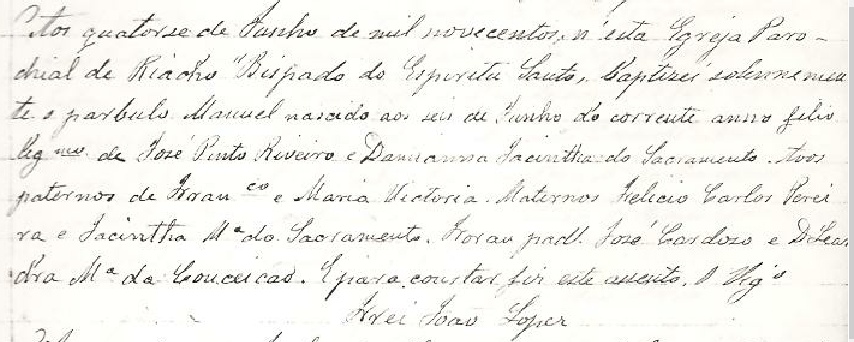 Aos quatorse de Junho de mil novecentos, n'esta Egreja Paro-
chial de Riacho Bispado do Espirito Santo, baptizei solemnemen
te o parbulo Manuel nascido aos seis de Junho do corrente anno filio
legmo. de José Pinto Riveiro e Damianna Jacintha do Sacramento. Avos
paternos de Franco e Maria Victoria. Maternos Felicio Carlos Perei
ra e Jacintha Ma do Sacramento. Foran padr. José Cardozo e D. Lean
dra Ma da Conceicao. E para constar fiz este assento. O Vigo
Frei Joao Lopez